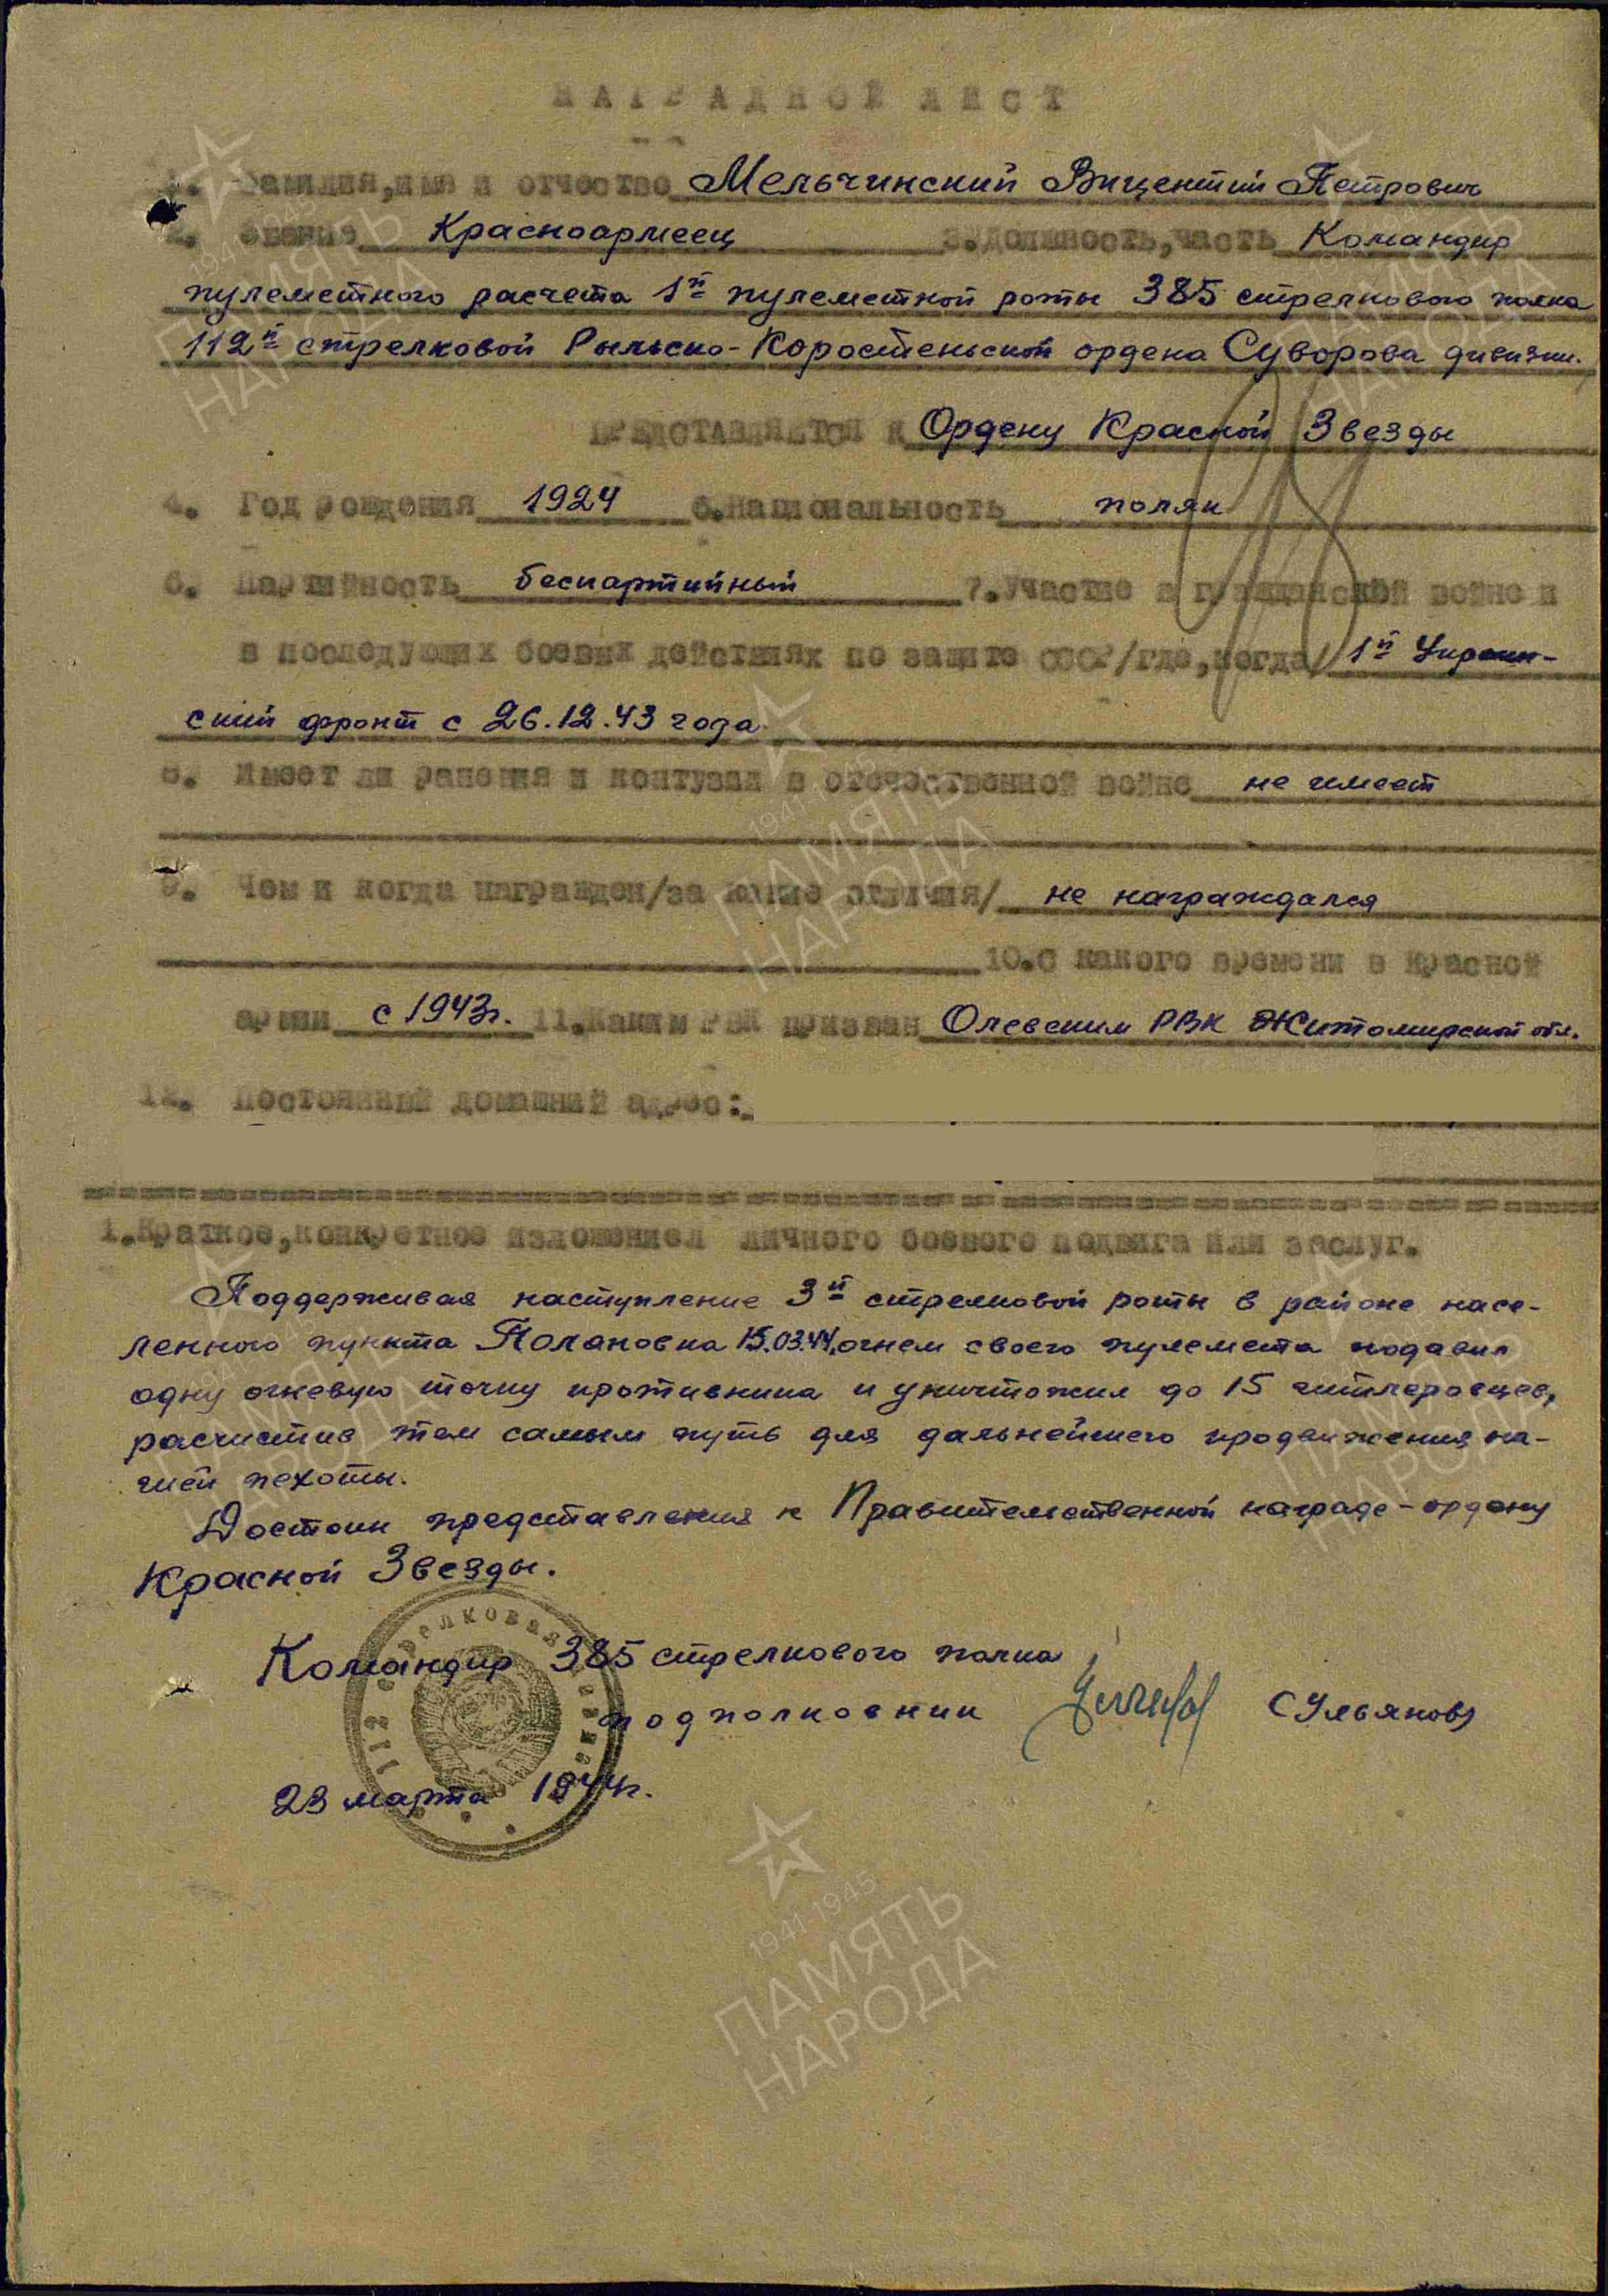 НАГРАДНОЙ ЛИСТ
1. Фамилия, имя и отчество Мельчинский Вицентий Петрович
2. Звание Красноармеец 3. Должность, часть Командир
пулеметного расчета 1й пулеметной роты 385 стрелкового полка
112й стрелковой Рыльско-Коростеньской ордена Суворова дивизии.
ПРЕДСТАВЛЯЕТСЯ К Ордену Красной Звезды
4. Год рождения 1924 5. Национальность поляк
6. Партийность беспартийный 7. Участие в гражданской войне и
в последующих боевых действиях по защите СССР /где, когда/ 1й Украин-
ский фронт с 26.12.43 года
8. Имеет ли ранения и контузии в отечественной войне не имеет
9. Чем и когда награжден /за какие отличия/ не награждался
10. С какого времени в Красной
армии с 1943г. 11. Каким РВК призван Олевским РВК Житомирской обл.
12. Постоянный домашний адрес:
1. Краткое, конкретное изложение личного боевого подвига или заслуг.
Поддерживая наступление 3й стрелковой роты в районе насе-
ленного пункта Полановка 15.03.44, огнем своего пулемета подавил
одну огневую точку противника и уничтожил до 15 гитлеровцев,
расчистив тем самым путь для дальнейшего продвижения на-
шей пехоты.
Достоин представления к Правительственной награде - ордену
Красной Звезды.
Командир 385 стрелкового полка
подполковник (Ульянов)
23 марта 1944г.
112 стрелковая дивизия
1941-1945
ПАМЯТЬ
НАРОДА